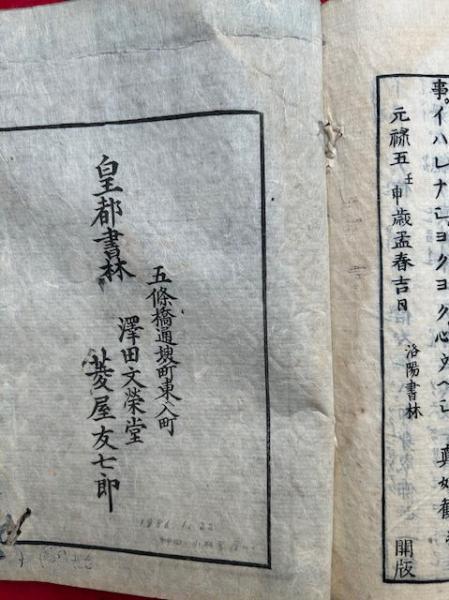 事。イハレナシヨクヨク心ウヘシ 真如觀
元禄五壬申歳孟春吉日
洛陽書林
開版
皇都書林
五條橋通堺町東入町
澤田文榮堂
菱屋友七郎